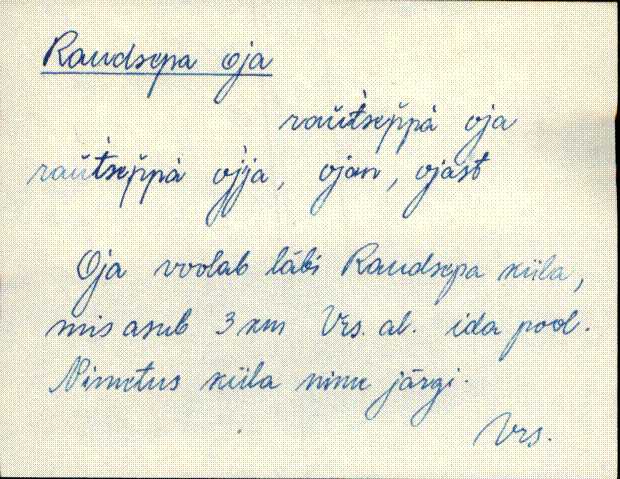 Raudsepa oja
raut́seppà oja
raut́seppà ojja, ojan, ojast
Oja voolab läbi Raudsepa küla,
mis asub 3 km Vrs. al. ida pool.
Nimetus küla nime järgi.
Vrs.